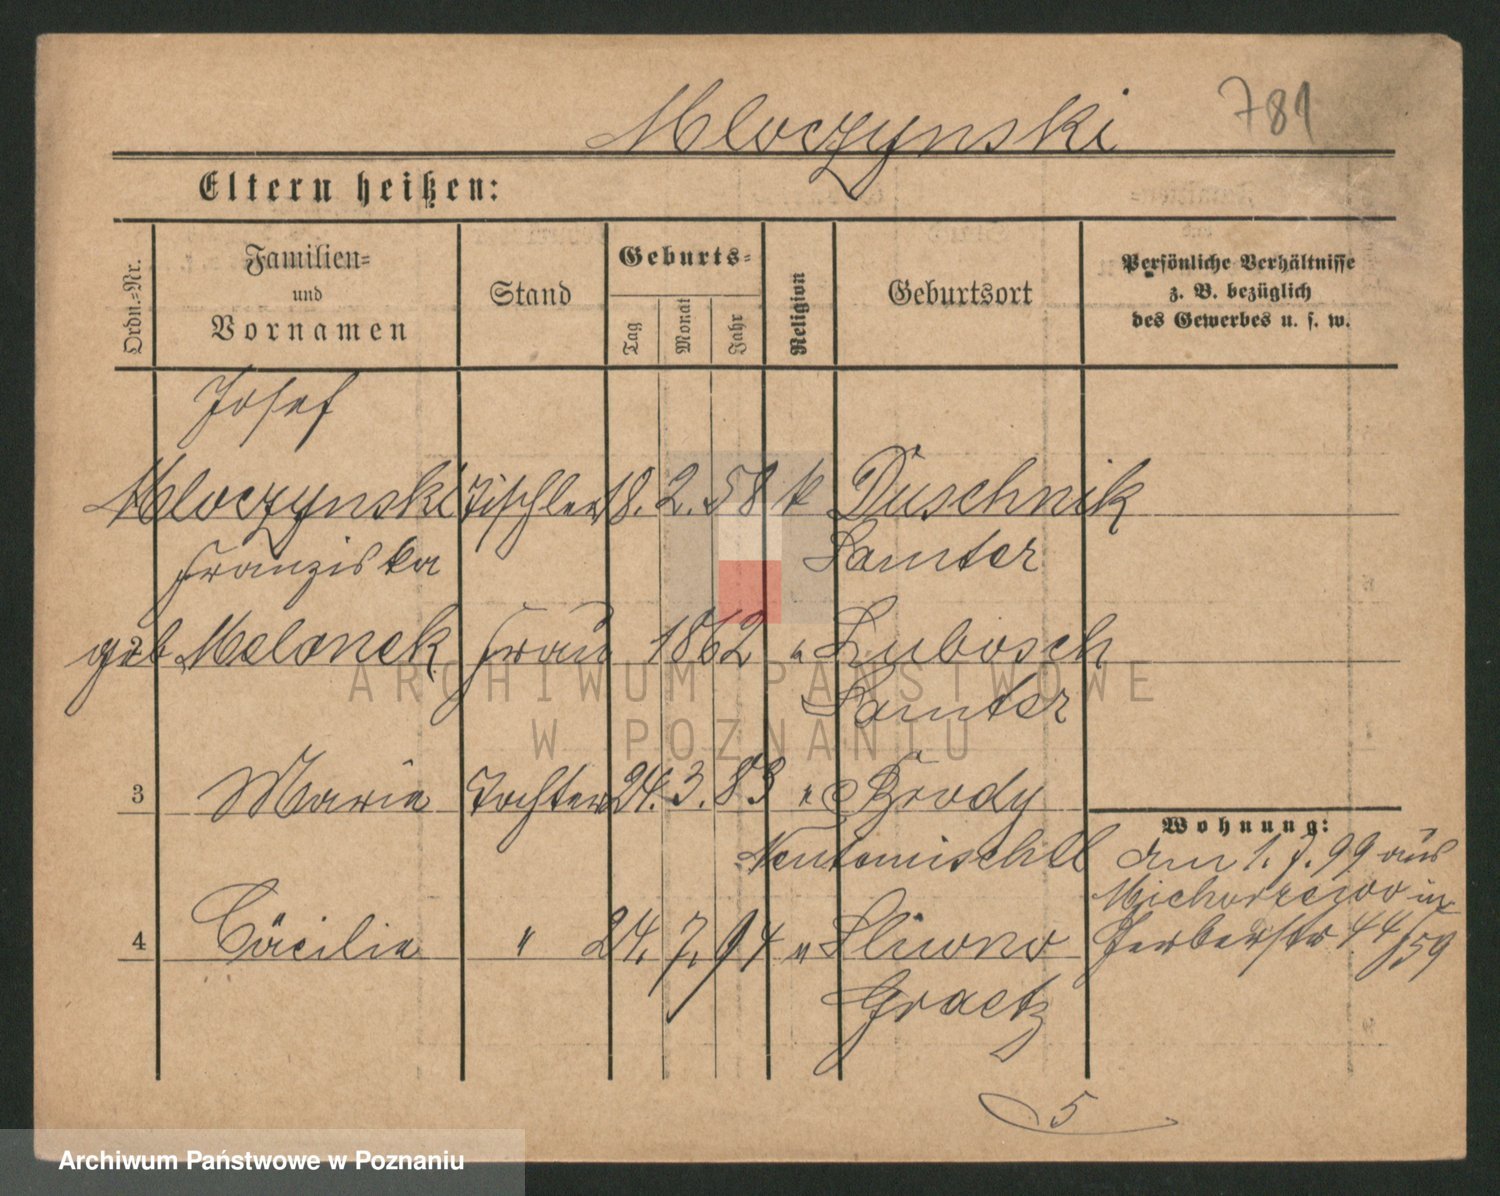 Mloczynski
781
Eltern heißen:
Ordn.=Nr.
Familien=
und
Vornamen
Stand
Geburts=
Tag
Monat
Jahr
Religion
Geburtsort
Persönliche Verhältnisse
z. B. bezüglich
des Gewerbes u. s. w.
Josef
Mloczynski Tischler 18. 2. 58 k Duschnik
Franziska Samter
geb Melonek Frau 1862 " Lubosch
Samter
3 Marie Tochter 24. 3. 83 " Brody
Neutomischel
4 Cäcilie " 24. 7. 94 " Sliwno
Graetz
Wohnung:
am 1. 7. 99 aus
in
Gerberstr 44/59
5
ARCHIWUM PAŃSTWOWE
W POZNANIU
Archiwum Państwowe w Poznaniu